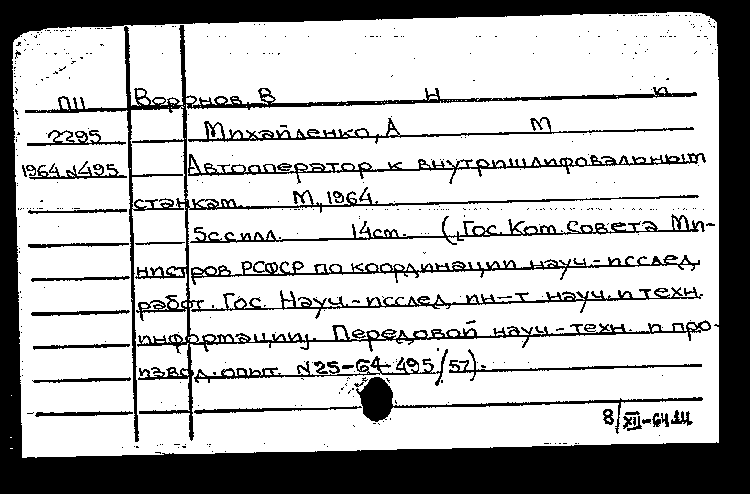 П11 Воронов, В Н и
2295 Михайленко, А М
1964 №495 Автооператор к внутришлифовальным
станкам. М, 1964.
5с с илл. 14см. (Гос. Ком. Совета Ми-
нистров РСФСР по координации науч.-исслед.
работ. Гос. Науч.-исслед. ин-т науч. и техн.
информации. Передовой науч.-техн. и про-
извод. опыт. №25-64-495/57).
8/XII-64